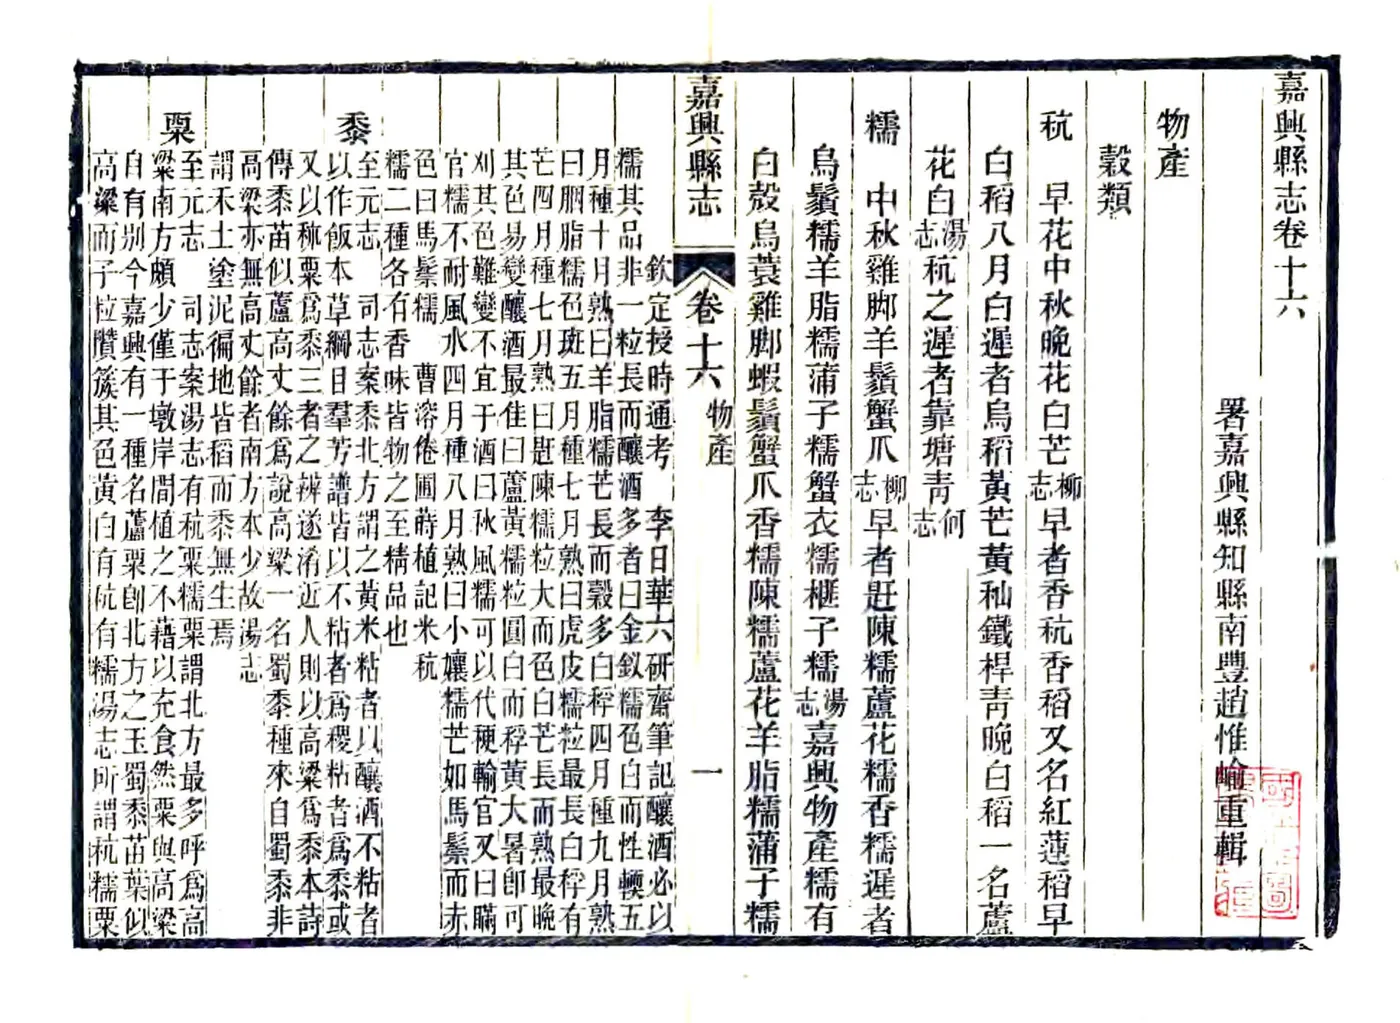 嘉興縣志卷十六
署嘉興縣知縣南豐趙惟崳重輯
物產
穀類
秔　早花中秋晚花白芒柳志早者香秔香稻又名紅蓮稻早
白稻八月白遲者烏稻黃芒黃秈鐵桿青晚白稻一名蘆
花白湯志秔之遲者靠塘青何志
糯　中秋雞脚羊鬚蟹爪柳志早者趕陳糯蘆花糯香糯遲者
烏鬚糯羊脂糯蒲子糯蟹衣糯榧子糯湯志嘉興物產糯有
白殼烏蓑雞脚蝦鬚蟹爪香糯陳糯蘆花羊脂糯蒲子糯
嘉興縣志
卷十六
物產
一
欽定授時通考　李日華六研齋筆記釀酒必以
糯其品非一粒長而釀酒多者曰金釵糯色白而性輭五
月種十月熟曰羊脂糯芒長而穀多白稃四月種九月熟
曰胭脂糯色斑五月種七月熟曰虎皮糯粒最長白稃有
芒四月種七月熟曰趕陳糯粒大而色白芒長而熟最晚
其色易變釀酒最佳曰蘆黃糯粒圓白而稃黃大暑卽可
刈其色難變不宜于酒曰秋風糯可以代稉輸官又曰瞞
官糯不耐風水四月種八月熟曰小孃糯芒如馬鬃而赤
色曰馬鬃糯　曹溶倦圃蒔植記米秔
糯二種各有香味皆物之至精品也
黍　至元志　司志案黍北方謂之黃米粘者以釀酒不粘者
以作飯本草綱目羣芳譜皆以不粘者爲稷粘者爲黍或
又以稱粟爲黍三者之辨遂淆近人則以高粱爲黍本詩
傳黍苗似蘆高丈餘爲說高粱一名蜀黍種來自蜀黍非
高粱亦無高丈餘者南方本少故湯志
謂禾土塗泥徧地皆稻而黍無生焉
粟　至元志　司志案湯志有秔粟糯粟謂北方最多呼爲高
粱南方頗少僅于墩岸間植之不藉以充食然粟與高粱
自有别今嘉興有一種名蘆粟卽北方之玉蜀黍苗葉似
高粱而子粒攢簇其色黄白有秔有糯湯志所謂秔糯粟